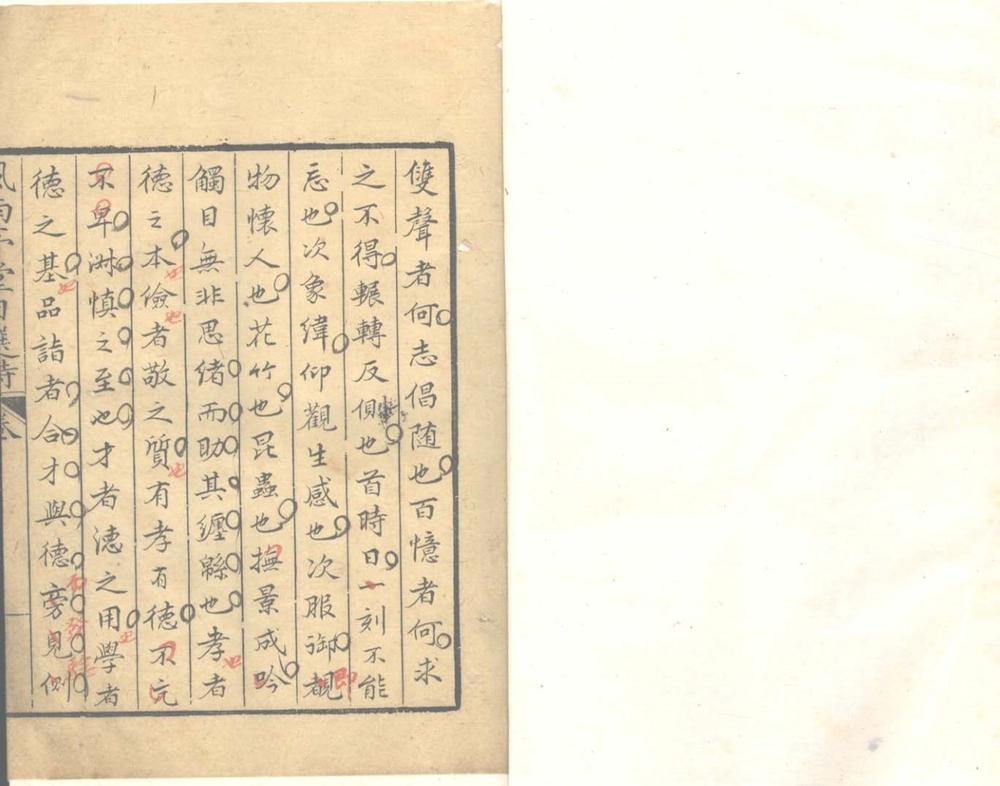 雙聲者何志倡随也百憶者何求
之不得輾轉反側也首時日一刻不能
忘也次象緯仰觀生感也次服御覩
物懷人也花竹也昆蟲也撫景成吟
觸目無非思緒而助其纏緜也孝者
德之本儉者敬之質有孝有德不亢
不卑淑慎之至也才者德之用學者
德之基品詣者合才與德旁見側
風雨 堂自選詩 卷